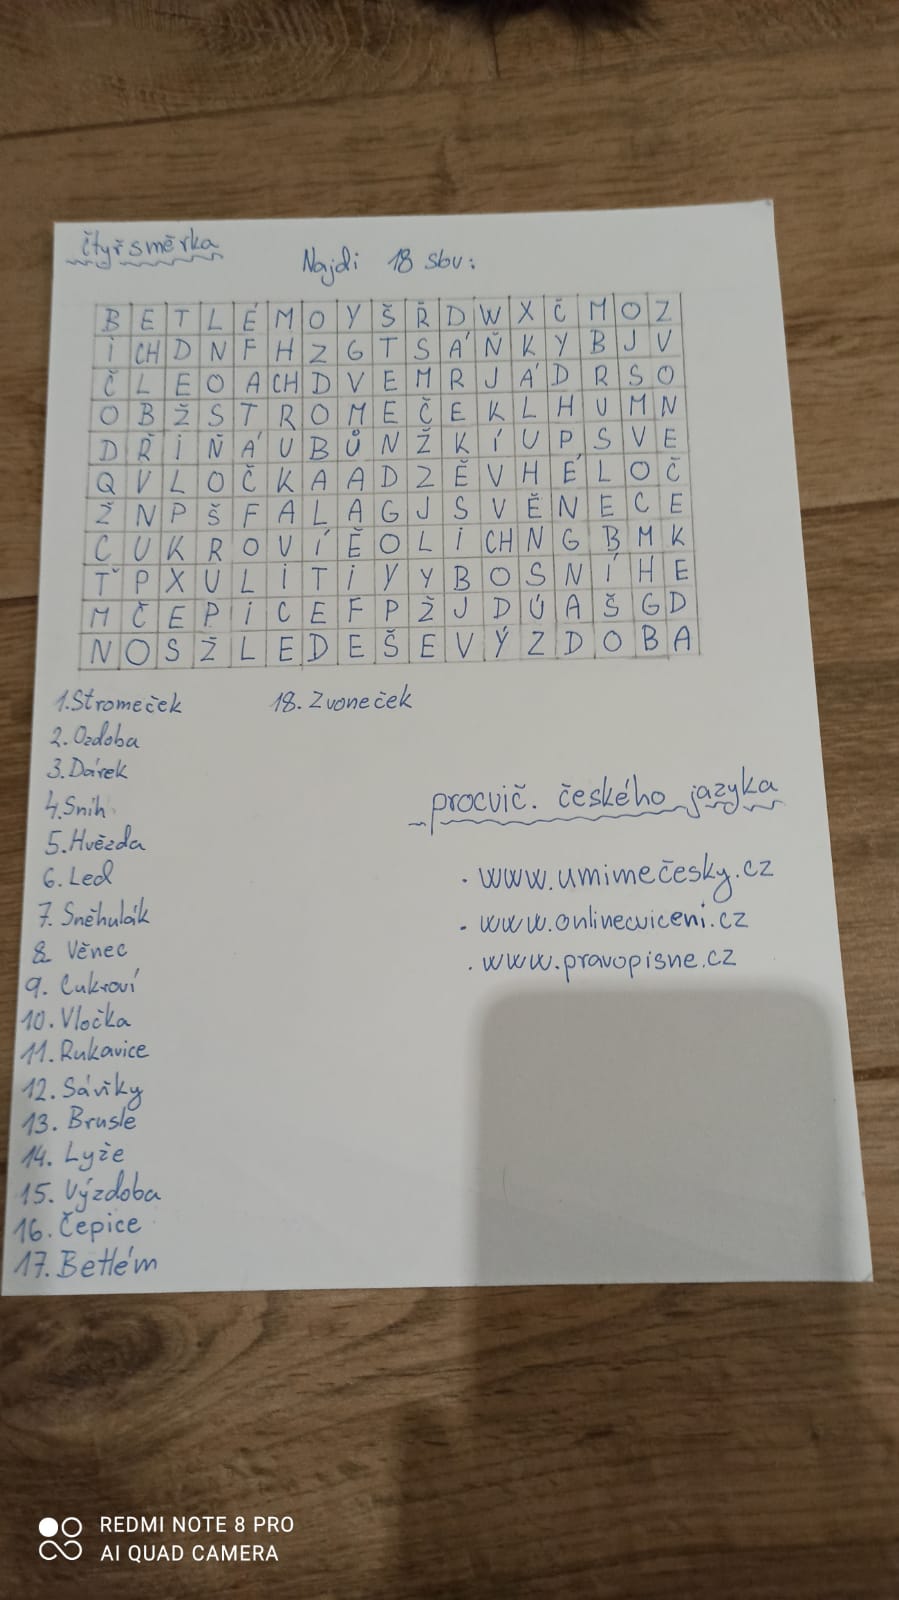 čtyřsměrka
Najdi 18 slov:
B E T L É M O Y Š Ř D W X Č M O Z
I CH D N F H Z G T S Á Ň K Y B J V
Č L E O A CH D V E M R J Á D R S O
O B Ž S T R O M E Č E K L H U M N
D Ř I Ň Á U B Ů N Ž K Í U P S V E
Q V L O Č K A A D Z Ě V H É L O Č
Ž N P Š F A L A G J S V Ě N E C E
C U K R O V Í Ě O L I CH N G B M K
Ť P X U L I T I Y Y B O S N Í H E
M Č E P I C E F P Ž J D Ú A Š G D
N O S Ž L E D E Š E V Ý Z D O B A
1. Stromeček 18. Zvoneček
2. Ozdoba
3. Dárek
4. Sníh
5. Hvězda
6. Led
7. Sněhulák
8. Věnec
9. Cukroví
10. Vločka
11. Rukavice
12. Sáňky
13. Brusle
14. Lyže
15. Výzdoba
16. Čepice
17. Betlém
procvič. českého jazyka
. www.umimečesky.cz
. www.onlinecviceni.cz
. www.pravopisne.cz
REDMI NOTE 8 PRO
AI QUAD CAMERA